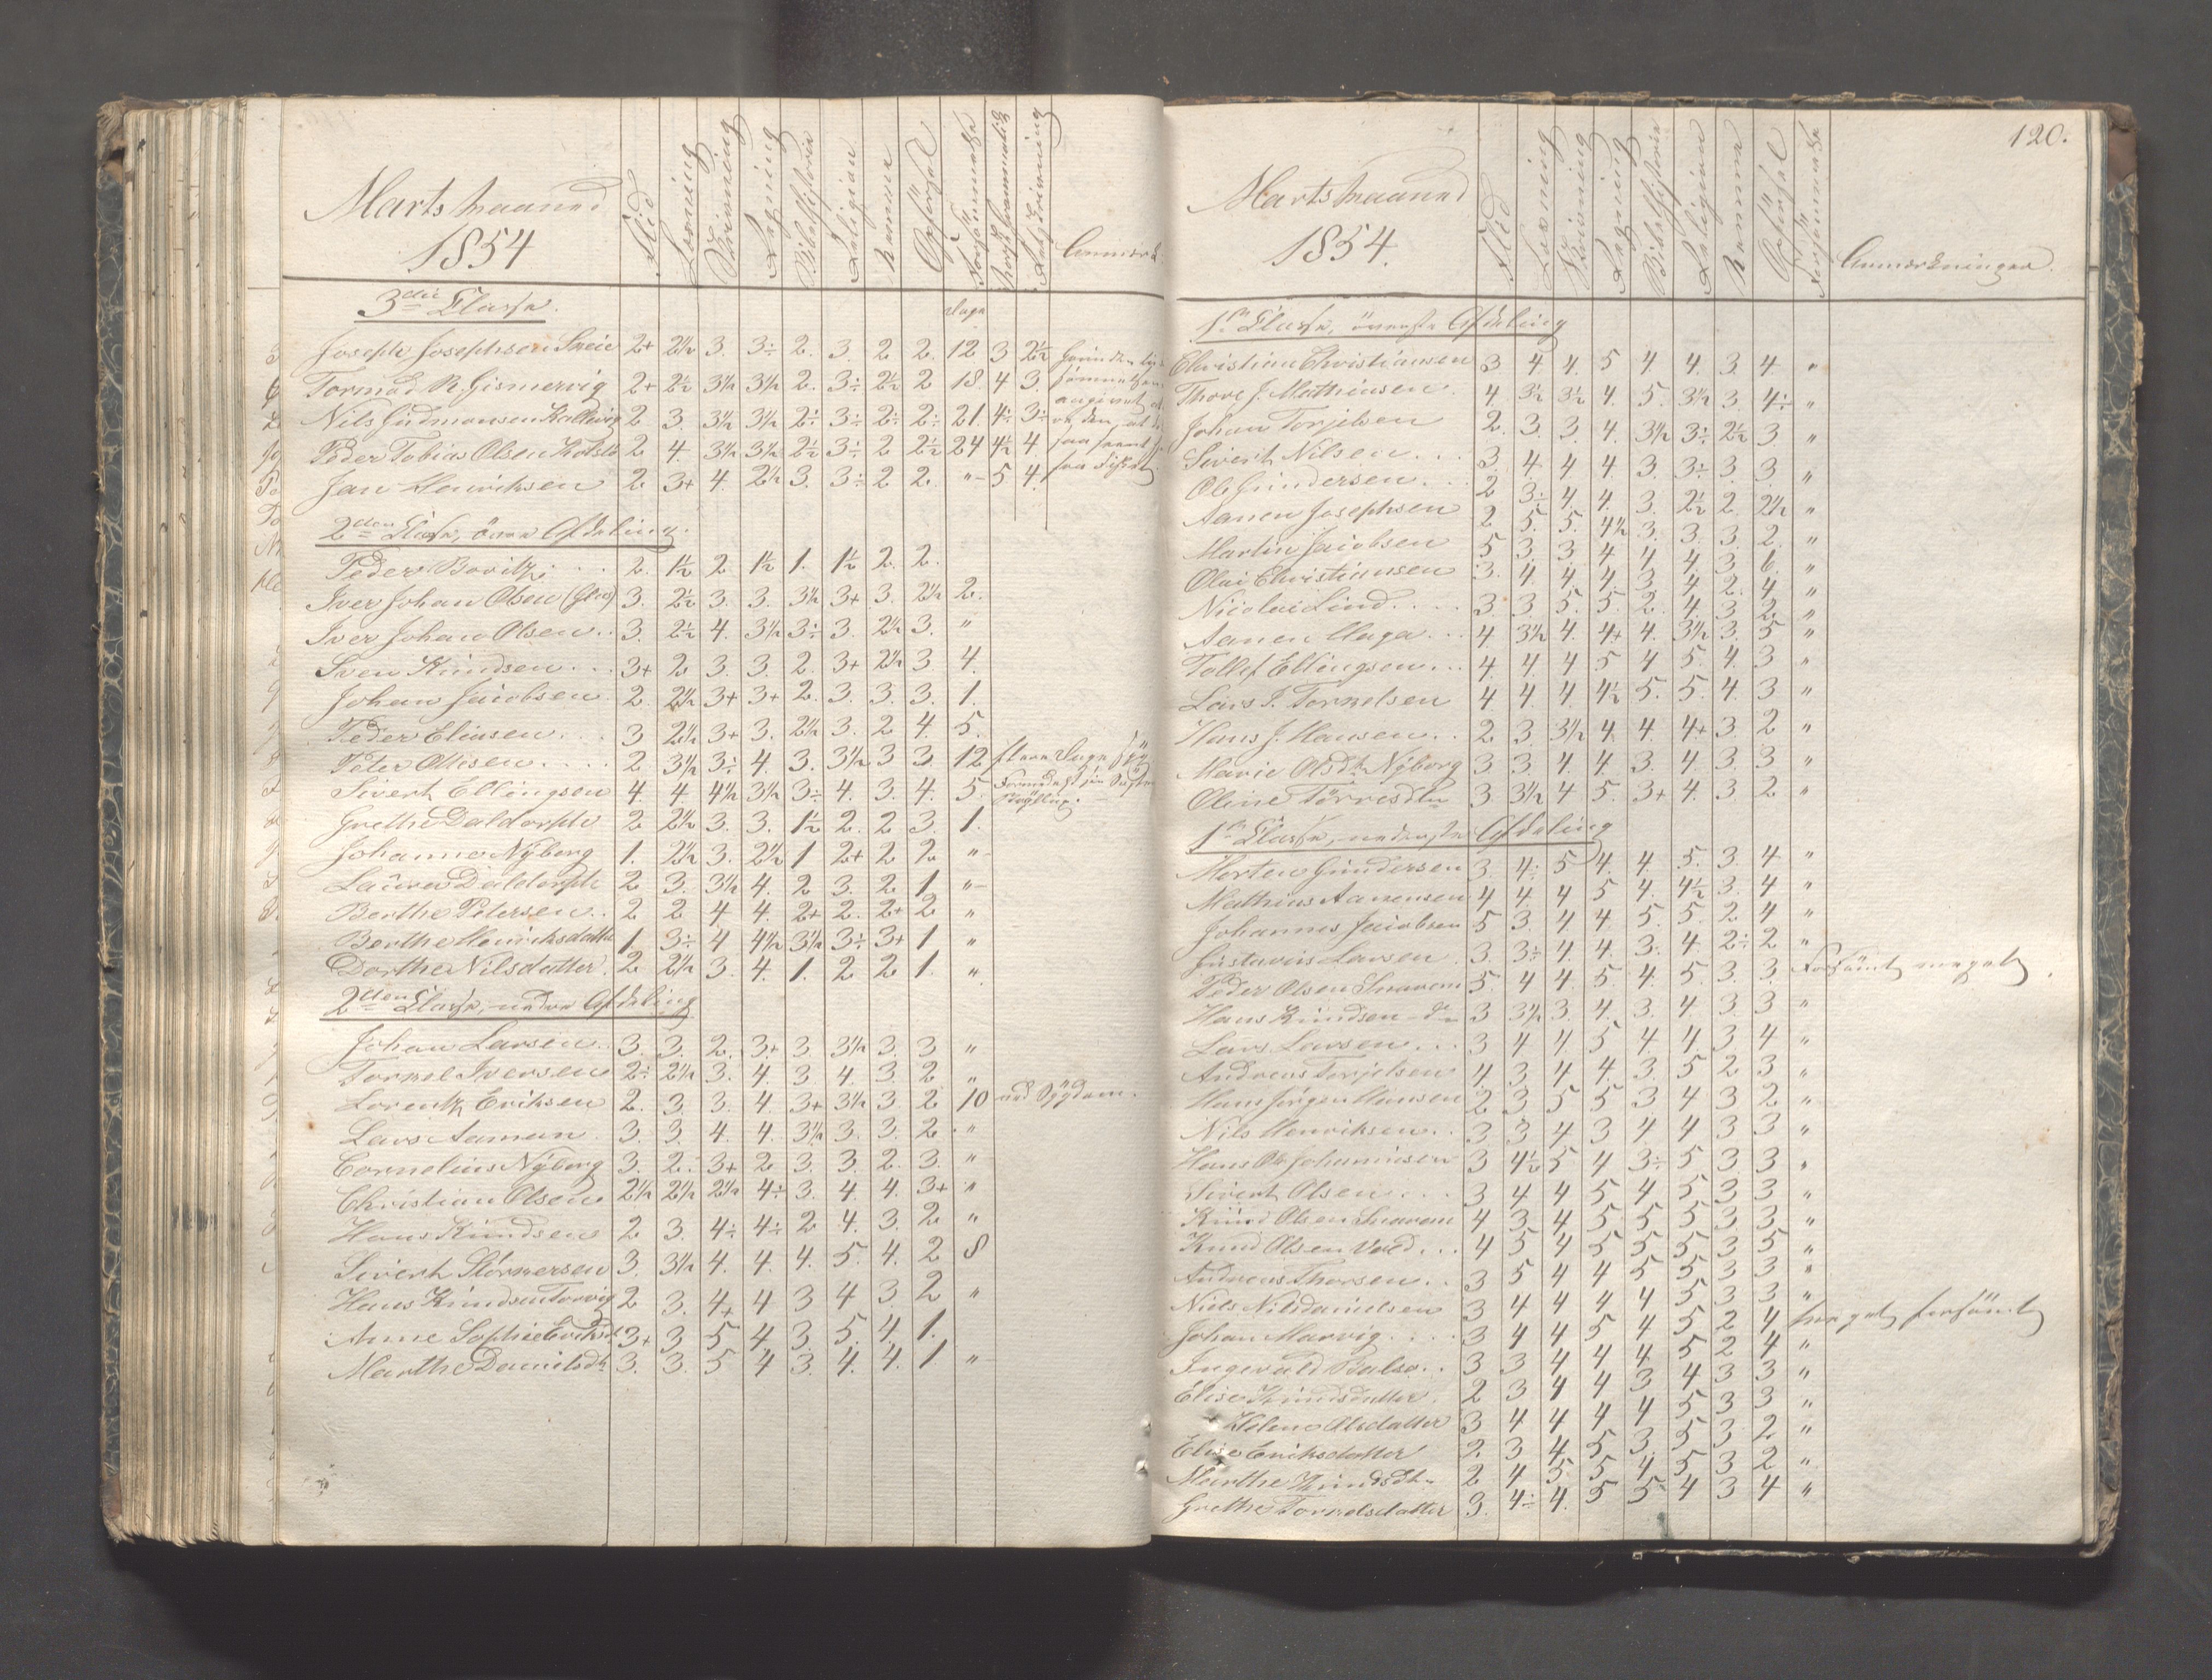 Marts Maaned
1854
Flid Læsning Skrivning Regning Bibelhistorie Religion Nemme Opførsel Forsømmelse Norsk Grammatik Retskrivning Anmærk.
3die Classe.
Dage
Joseph Josephsen Sneie 2+ 2½ 3. 3÷ 2. 3. 2 2. 12 3 2½
Tormod R. Gismervig 2+ 2½ 3½ 3½ 2. 3÷ 2½ 2 18. 4 3.
Nils Gudmonsen Kallevig 2 3. 3½ 3½ 2÷ 3÷ 2÷ 2÷ 21. 4÷ 3÷
Peder Tobias Olsen 2 4. 3½ 3½ 2½ 3÷ 2 2½ 24 4½ 4.
Jan Henriksen 2 3+ 4. 2½ 3. 3÷ 2 2. " 5 4.
2den Classe, øvre Afdeling.
Peder Boritz 2. 1½ 2 1½ 1. 1½ 2. 2.
Iver Johan Olsen 3. 2½ 3. 3. 3½ 3+ 3. 2½ 2.
Iver Johan Olsen 3. 2½ 4. 3½ 3÷ 3. 2½ 3. "
Sven Knudsen 3+ 2 3 3. 2. 3+ 2½ 3 4.
Johan Jacobsen 2. 2½ 3+ 3+ 2. 3. 3. 3. 1.
Peder Eliasen 3 2½ 3+ 3. 2½ 3. 2 4. 5.
Peter Olsen 2. 3½ 3÷ 4. 3. 3½ 3 3. 12 flere Dage
Sivert Ellingsen 4. 4. 4½ 3½ 3÷ 4. 3. 4. 5. Bryllup.
Grethe Daldorph 2 2½ 3. 3. 1½ 2. 2 3. 1.
Johanne Nÿberg 1. 2½ 3. 2½ 1 2+ 2 2 "
Laura Daldorph 2 3. 3½ 4. 2 3. 2 1 "
Berthe Petersen 2 2 4 4. 2+ 2. 2+ 2 "
Berthe Henriksdatter 1. 3÷ 4 4½ 3½ 3÷ 3+ 1 "
Dorthe Nilsdatter. 2 2½ 3. 4. 1. 2 2 1. "
2den Classe, nedre Afdeling
Johan Larsen 3. 3. 2. 3+ 3. 3½ 3. 3 "
Tormel Iversen 2÷ 2½ 3. 4. 3 4. 3. 2 "
Lorentz Eriksen 2. 3. 3. 4. 3+ 3½ 3. 2 10 ved Sygdom.
Lars Aamen 3. 3. 4. 4. 3½ 3. 3. 2 "
Cornelius Nÿberg 3. 2. 3+ 2 3. 3. 2. 3. "
Christian Olsen 2½ 2½ 2½ 4÷ 3. 4. 4. 3+ "
Hans Knudsen 2 3. 4÷ 4÷ 2 4. 3. 2 "
Sivert Størkersen 3. 3½ 4. 4. 4. 5. 4. 2 8
Hans Knudsen Torvig 2 3. 4+ 4 3 4 3. 2 "
Anne Sophie Eriksd 3+ 3 5 4 3. 5. 4. 1.
Marthe Danielsdt 3. 3. 5 4 3. 4. 4. 1 "
120.
Marts Maaned
1854.
Flid Læsning Skrivning Regning Bibelhistorie Religion Nemme Opførsel Forsømmelse Anmærkninger.
1ste Classe, øverste Afdeling
Christian Christiansen 3 4 4. 5 4. 4. 3 4 "
Thore J. Mathiasen 4. 3½ 3½ 4. 5. 3½ 3. 4÷ "
Johan Torjelsen 2. 3. 3. 4. 3½ 3÷ 2½ 3. "
Sivert Nilsen 3. 4. 4 4 3. 3÷ 3. 3. "
Ole Gundersen 2 3÷ 4. 4. 3. 2½ 2. 2½ "
Aanen Josephsen 2 5. 5. 4½ 3. 3. 3. 2. "
Martin Jacobsen 5 3. 3 4 4 4. 3 6. "
Olai Christiansen 3. 4. 4. 4. 3 4 2. 4 "
Nicolai Lind 3. 3 5. 5. 2. 4. 3 2. "
Aanen Haga 4. 3½ 4. 4+ 4. 3½ 3. 5 "
Tollef Ellingsen 4. 4. 4 5 4 5. 4. 3 "
Lars T. Tormelsen 4 4. 4 4½ 5. 5. 4. 3 "
Hans J. Hansen 2 3. 3½ 4. 4. 4+ 3. 2 "
Marie Olsdt Nÿborg 3. 3. 4. 4. 3. 4. 3. 3. "
Oline Tørresdtr 3. 3½ 4 5. 3+ 4. 3 2 "
1ste Classe, nederste Afdeling
Morten Gundersen 3. 4÷ 5 4. 4. 5. 3. 4 "
Mathias Aanensen 4 4. 4 5 4. 4½ 3. 4 "
Johannes Jacobsen 5 3. 4 4. 5. 5. 2 4 "
Gustavus Larsen 3. 3÷ 4. 4. 3. 4. 2÷ 2 "
Peder Olsen Snarem 5. 4 4. 5 4. 5. 3. 3. Forsømt meget.
Hans Knudsen do 3 3½ 3. 4. 3. 4. 3 3 "
Lars Larsen 3 4 4. 5 4. 4. 3 4 "
Andreas Torjelsen 4 3. 4 4. 3. 5 2 3 "
Hans Jørgen Hansen 2 3 5 5 3 4 3 2 "
Nils Henriksen 3 3 4 3 4 4 3 3 "
Hans Ole Johannesen 3 4½ 5 4 3÷ 5 3. 3 "
Sivert Olsen 3 4 4 5 4 5 3 3 "
Knud Olsen Snarem 4 3 4 5 5 5 3 3 "
Knud Olsen 4 5 4 5 5 5 3 5 "
Andreas Thorsen 3 5 4 4 5 5 3 3 "
Niels Nilsdanielsen 3 4 4 4 4 5 3 3 "
Johan Marvig 3 4 4 5 4 5 2 4 meget forsømt
Ingevald 3 3 4 4 4 5 2 4 "
Elise Knudsdatter 2 3 4 4 3 4 3 3 "
Helene Olsdatter 3 4 4 4 4 5 3 3 "
Elise Eriksdatter 2 3 4 5. 3. 5 3 2 "
Marthe Knudsdtr 2 4 5 5 4 5 3 2 "
Grethe Tormelsdatter 3. 4÷ 4. 5 5 4 3 4 "